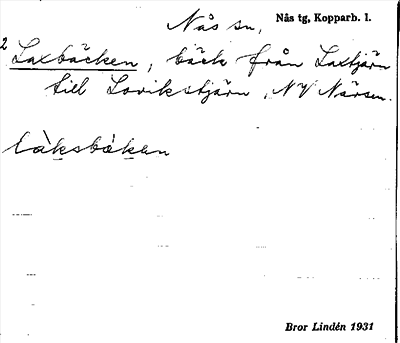 Nås sn, Nås tg, Kopparb. l.
2 Laxbäcken, bäck från Laxtjärn
till Lovikstjärn, NV Närsen.
làksbä̀ken
Bror Lindén 1931